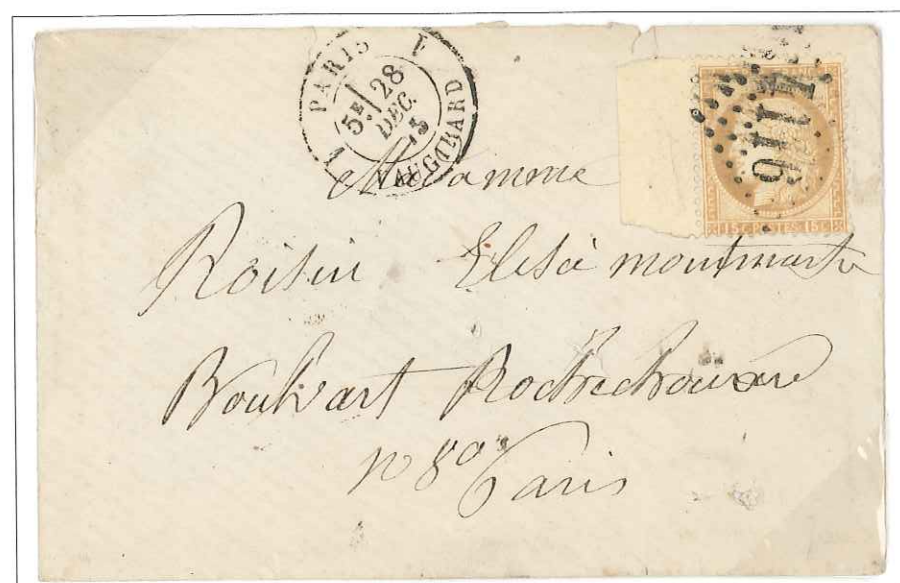 PARIS
5E
28
DEC.
73
VAUGIRARD
4116
15 C POSTES 15 C
Madamme
Roisin Elesé à montmartre
Boulvart Rochechouare
no 80
Paris